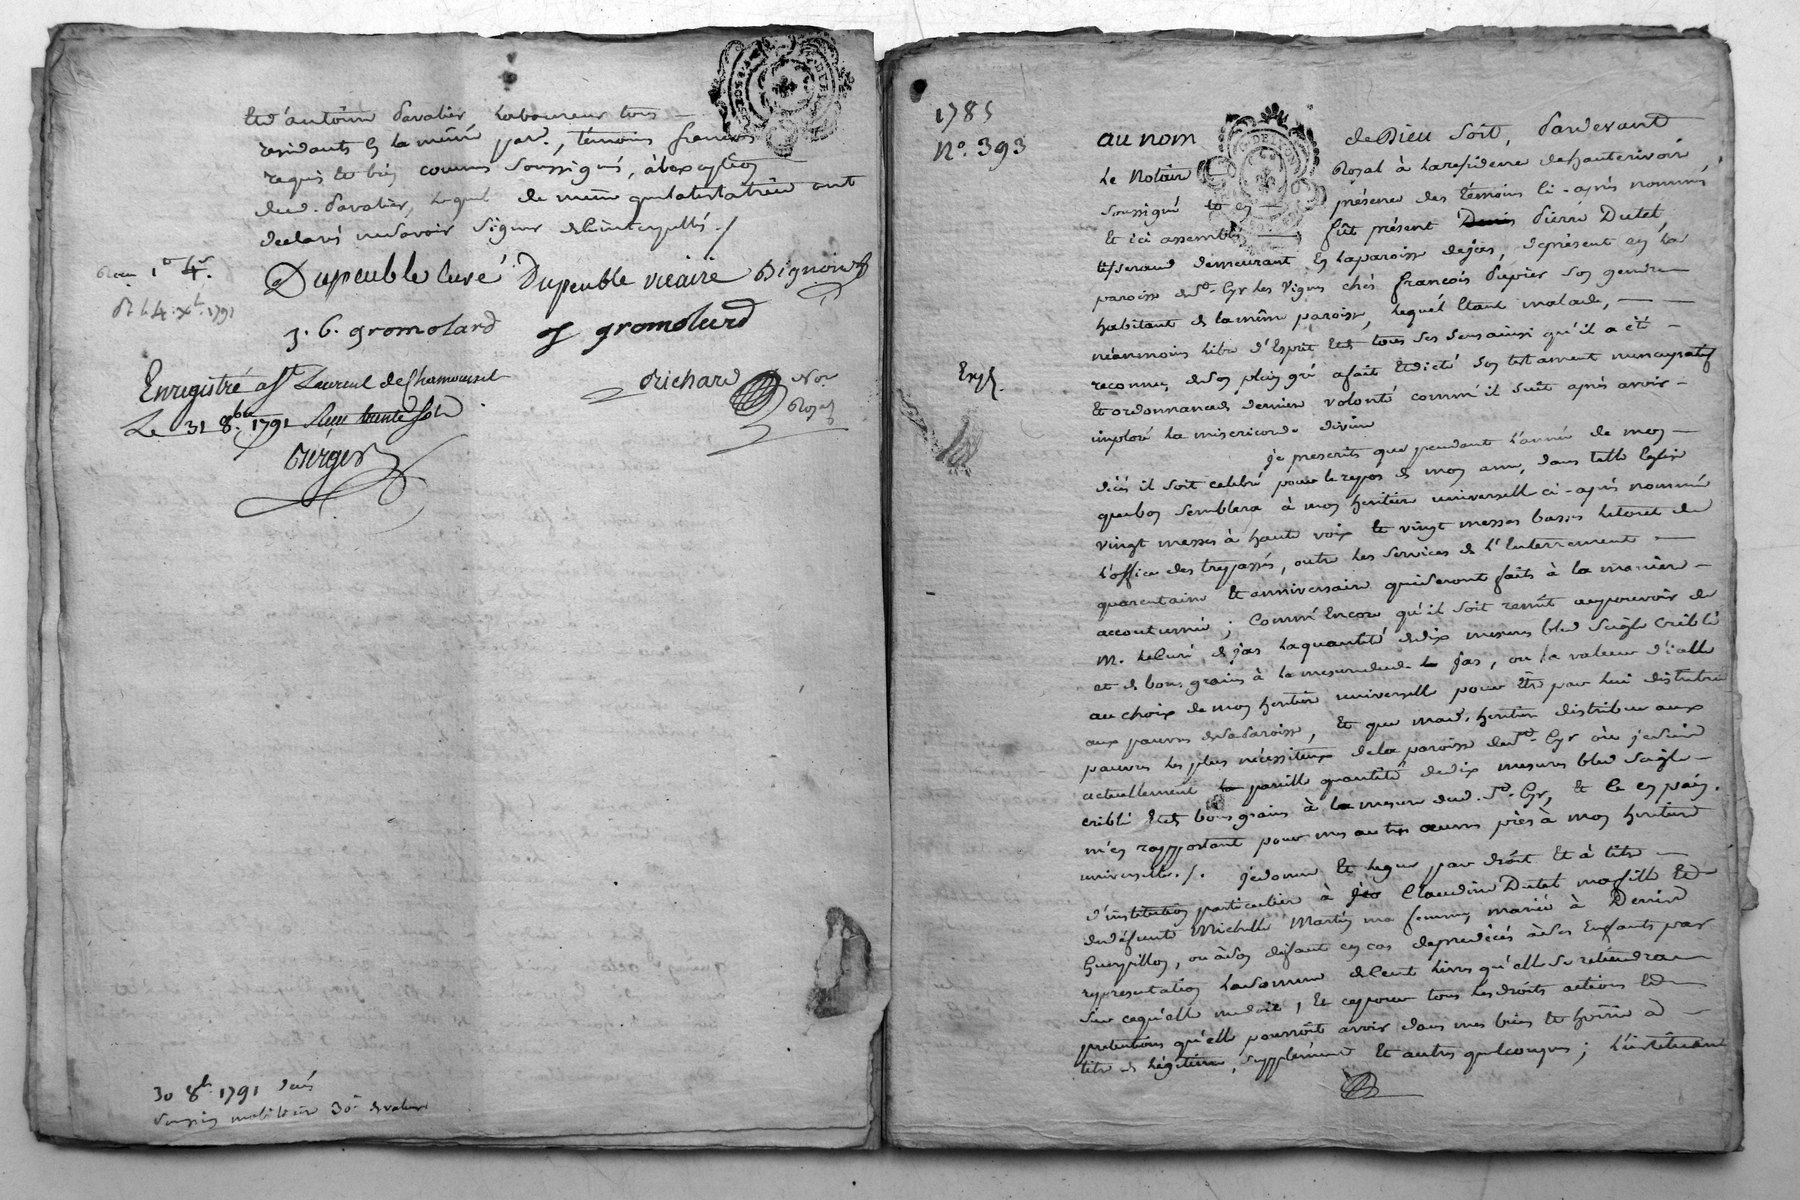 Et d'antoine Pavalier Laboureur tous
residants en la même par.e, témoins françois
requis et bien connus soussignés, à l'exception
dud. Pavalier, lequel de même que la testatrice ont
declaré ne savoir signer de ce interpellés ./
Dupeuble curé Dupeuble vicaire Bignon
J. B. gromolard gromolard
Richard Not.
Royal
Enregistré a St. Laurent de Chamousset
Le 31 8bre 1791 Reçu trente sols
Berger
30 8bre 1791
1785
N.o 393
au nom de Dieu soit, Pardevant
Le Notaire Royal à la residence de hauterivoire
soussigné et en présence des témoins ci-après nommés
Et ici assemblés fût présent Denis Pierre Dutel,
tisserand demeurant en la paroisse de jas, de présent en la
paroisse de St. Cyr les Vignes chés françois Papier son gendre
habitant de la même paroisse, lequel étant malade,
néanmoins libre d'Esprit et de tous ses sens ainsi qu'il a été
reconnu, de son plein gré a fait et dicté son testament nuncupatif
et ordonnance de derniere volonté comm'il suit après avoir
imploré la misericorde divine
Je prescrits que pendant l'année de mon
décès il soit celebré pour le repos de mon ame, dans telle Eglise
que bon semblera à mon heritier universelle ci-après nommé
vingt messes à haute voix et vingt messes basses le tout de
l'office des trepassés, outre les services de l'Enterrement
quarentaine et anniversaire qui seront faits à la maniere
accoutumée ; Comm'Encore qu'il soit remit au pouvoir de
M. le Curé de jas la quantité de dix mesures bled seigle criblé
et de bons grains à la mesure dud. jas, ou la valeur d'icelle
au choix de mon heritier universelle pour être par lui distribué
aux pauvres de sa Paroisse, et que mond. heritier distribue aux
pauvres les plus nécessiteux de la paroisse de St. Cyr où je reside
actuellement pareille quantité de dix mesures bled seigle
criblé et de bons grains à la mesure dud. St. Cyr, et ce en pain.
m'en rapportant pour mes autres œuvres pies à mon heritier
universelle ./. Je donne et legue par droit et à titre
d'institution particuliere à Claudine Dutel ma fille et
de défunte Michelle Martin ma femme, mariée à Denis
Guerpillon, ou à son défaut en cas de predécès à ses Enfants par
representation la somme de Cent livres qu'elle se retiendra
sur ce qu'elle me doit, et ce pour tous les droits actions et
pretentions qu'elle pourroit avoir dans mes biens et hoirie à
titre de légitime, supplément et autres quelconques ; l'instituant